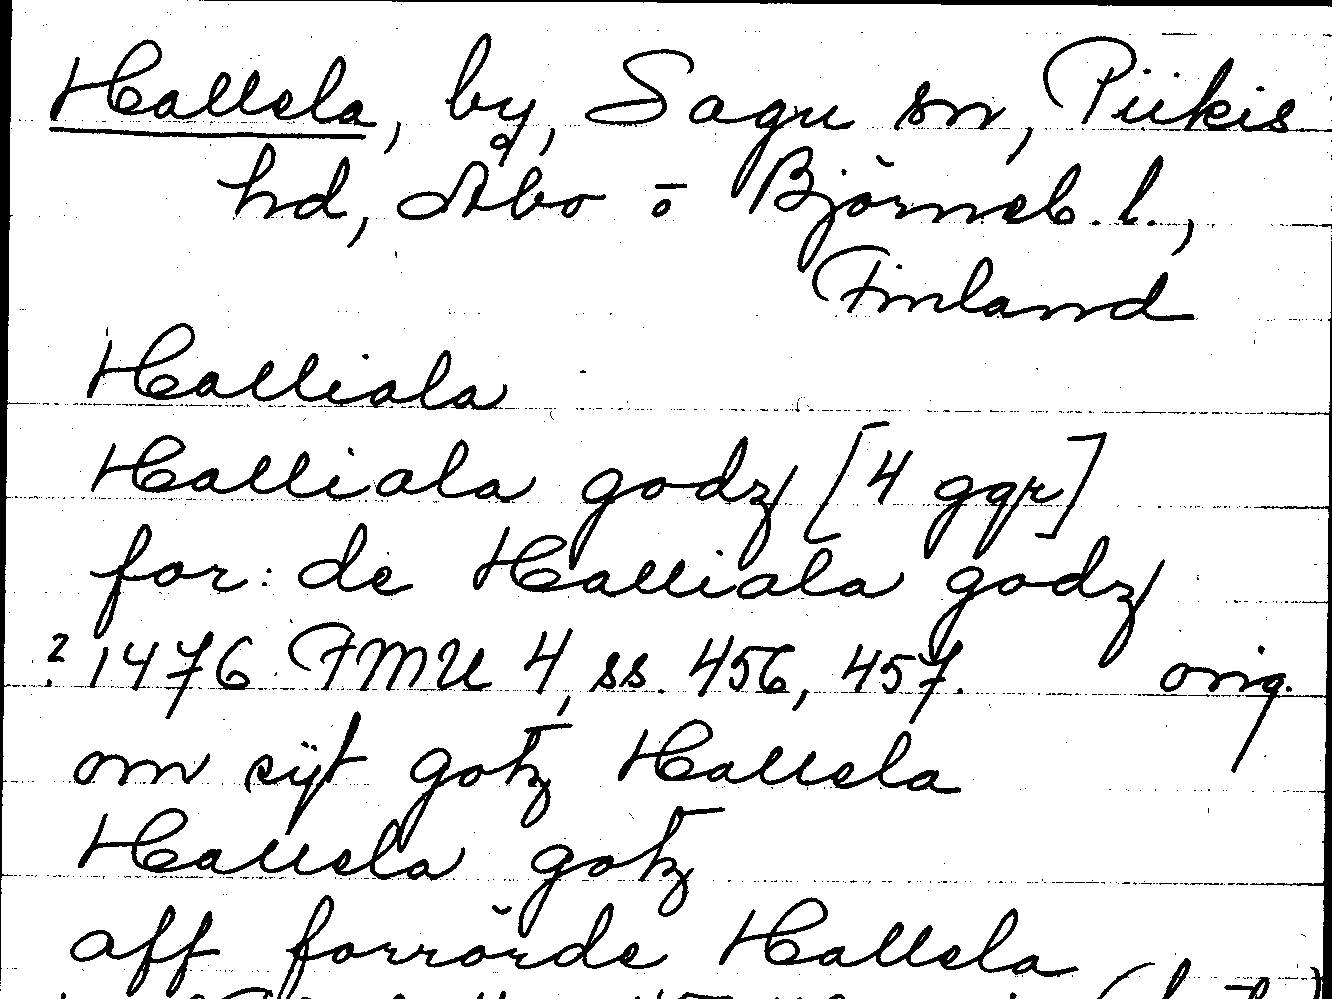 Hallela, by, Sagu sn, Piikis
hd, Åbo o Björneb. l.,
Finland
Halliala
Halliala godz [4 ggr]
for: de Halliala godz
? 1476 FMU 4, ss. 456, 457. orig.
om sijt gotz Hallela
Hallela gotz
aff forrörde Hallela